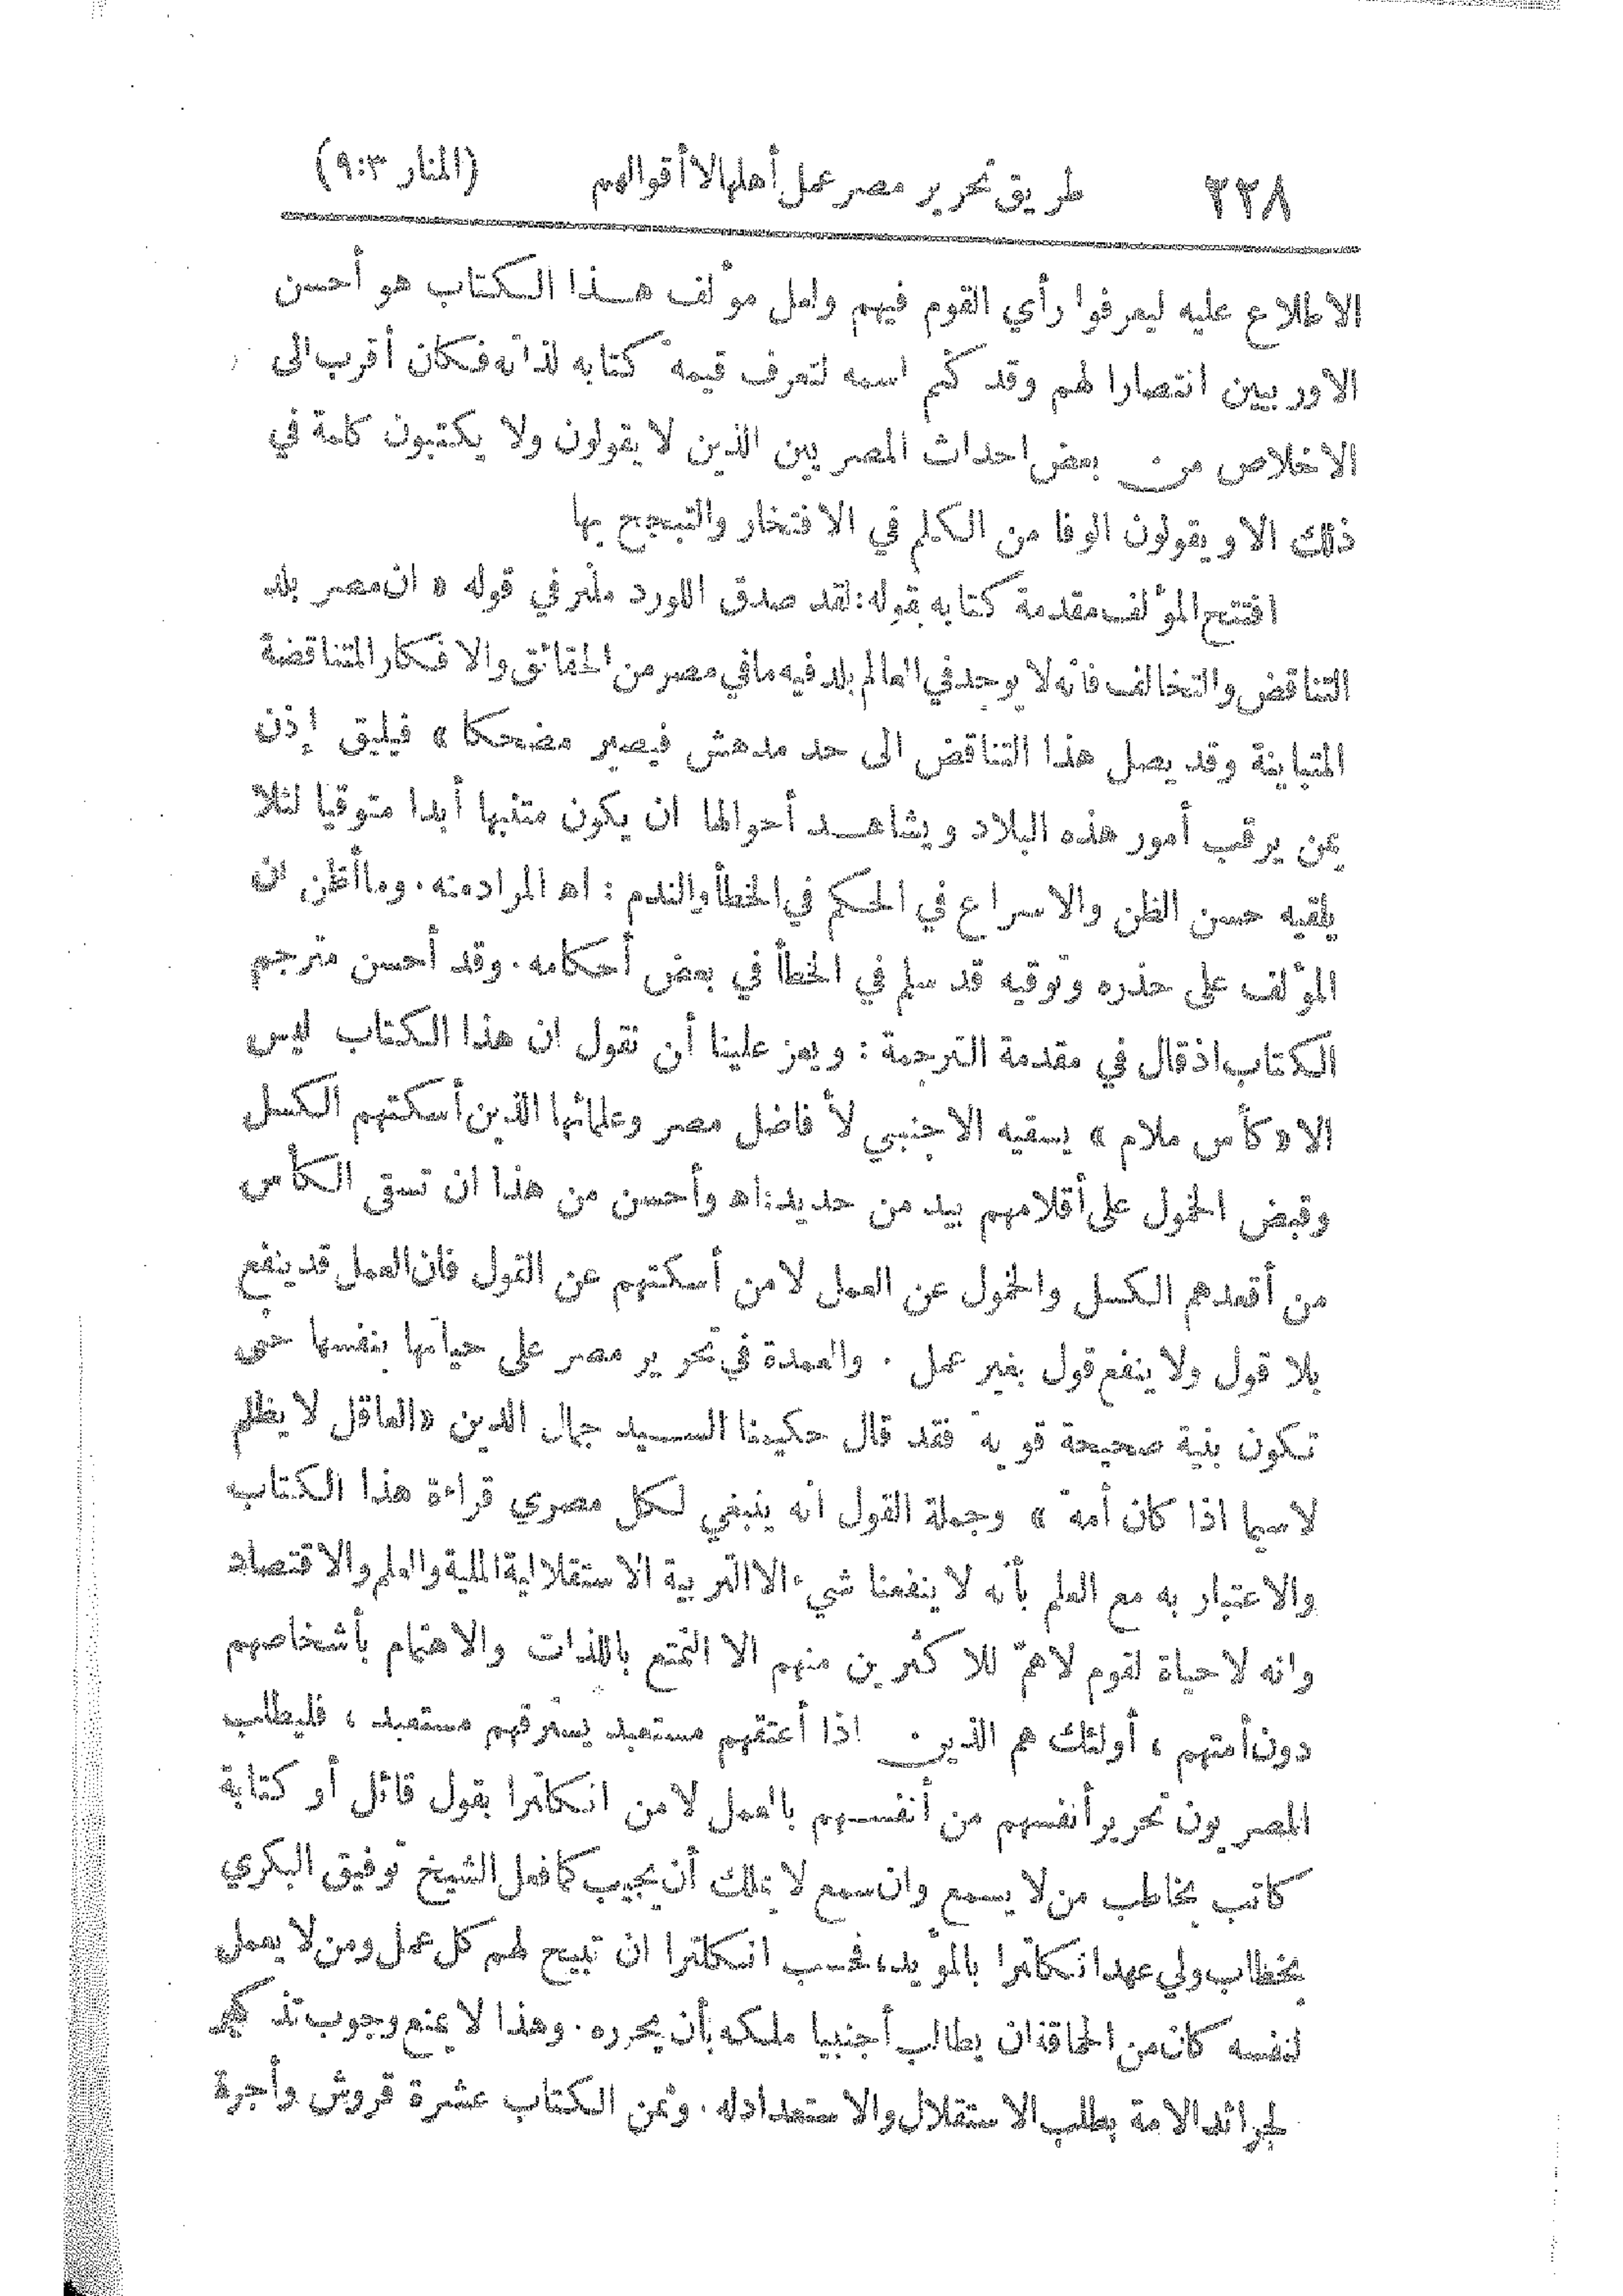 ٢٢٨ طريق تحرير مصر عمل أهلها لا أقوالهم (المنار ٩:٣)
الاطلاع عليه ليعرفوا رأي القوم فيهم ولعل مؤلف هذا الكتاب هو أحسن
الاوربيين انتصارا لهم وقد كتم اسمه لتعرف قيمة كتابه لذاته فكان أقرب الى
الاخلاص من بعض احداث المصريين الذين لا يقولون ولا يكتبون كلمة في
ذلك الا ويقولون الوفا من الكلم في الافتخار والتبجح بها
افتتح المؤلف مقدمة كتابه بقوله: لقد صدق اللورد ملنر في قوله « ان مصر بلد
التناقض والتخالف فانه لا يوجد في العالم بلد فيه مافي مصر من الحقائق والافكار المتناقضة
المتباينة وقد يصل هذا التناقض الى حد مدهش فيصير مضحكا » فيليق إذن
بمن يرقب أمور هذه البلاد ويشاهد أحوالها ان يكون متنبها أبدا متوقيا لئلا
يلقيه حسن الظن والاسراع في الحكم في الخطأ والندم : اه المراد منه . وما أظن ان
المؤلف على حذره وتوقيه قد سلم في الخطأ في بعض أحكامه . وقد أحسن مترجم
الكتاب اذ قال في مقدمة الترجمة : ويعز علينا أن نقول ان هذا الكتاب ليس
الا « كأس ملام » يسقيه الاجنبي لأفاضل مصر وعلمائها الذين أسكتهم الكسل
وقبض الخمول على أقلامهم بيد من حديد: اه وأحسن من هذا ان تسقى الكأس
من أقعدهم الكسل والخمول عن العمل لا من أسكتهم عن القول فان العمل قد ينفع
بلا قول ولا ينفع قول بغير عمل . والعمدة في تحرير مصر على حياتها بنفسها حتى
تكون بنية صحيحة قوية فقد قال حكيمنا السيد جمال الدين « العاقل لا يظلم
لاسيما اذا كان أمة » وجملة القول انه ينبغي لكل مصري قراءة هذا الكتاب
والاعتبار به مع العلم بأنه لا ينفعنا شيء الا التربية الاستقلالية الملية والعلم والاقتصاد
وانه لا حياة لقوم لا همّ للاكثرين منهم الا التمتع باللذات والاهتمام بأشخاصهم
دون أمتهم ، أولئك هم الذين اذا أعتقهم مستعبد يسترقهم مستعبد ، فليطلب
المصريون تحرير أنفسهم من أنفسهم بالعمل لا من انكلترا بقول قائل أو كتابة
كاتب يخاطب من لا يسمع وان سمع لا يملك أن يجيب كما فعل الشيخ توفيق البكري
بخطاب ولي عهد انكلترا بالمؤيد، فحسب انكلترا ان تبيح لهم كل عمل ومن لا يعمل
لنفسه كان من الحماقة ان يطالب أجنبيا ملكه بأن يحرره . وهذا لا يمنع وجوب تذكير
الجرائد الامة بطلب الاستقلال والاستعداد له . وثمن الكتاب عشرة قروش وأجرة